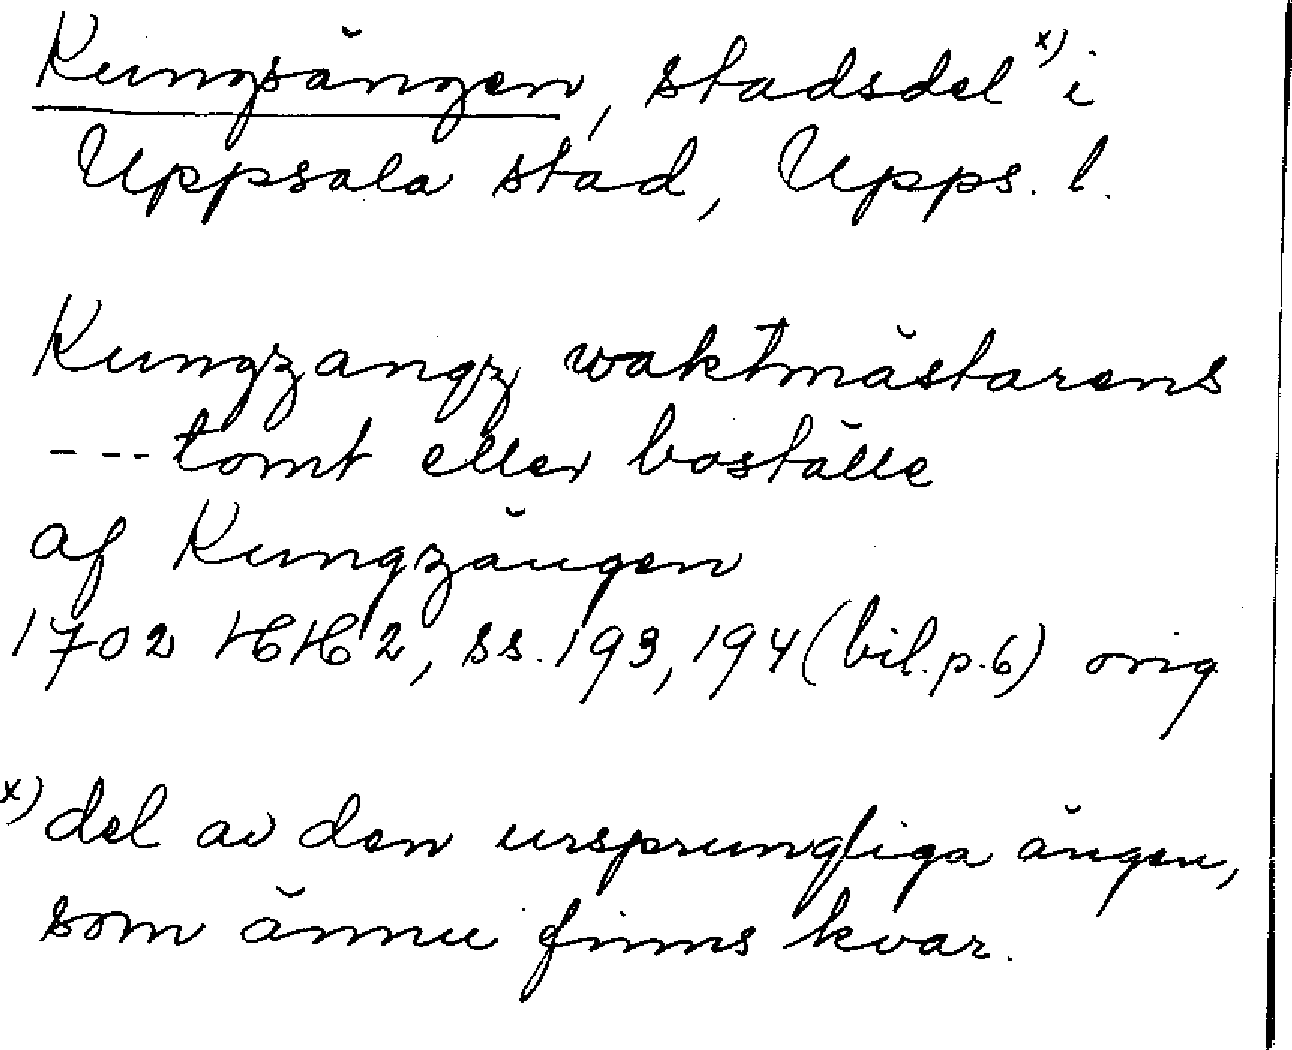 Kungsängen, stadsdel x) i
Uppsala stad, Upps. l.
Kungzangz waktmästarens
--- tomt eller boställe
af Kungzängen
1702 HH 2, ss. 193, 194 (bil. p. 6) orig
x) del av den ursprungliga ängen,
som ännu finns kvar.